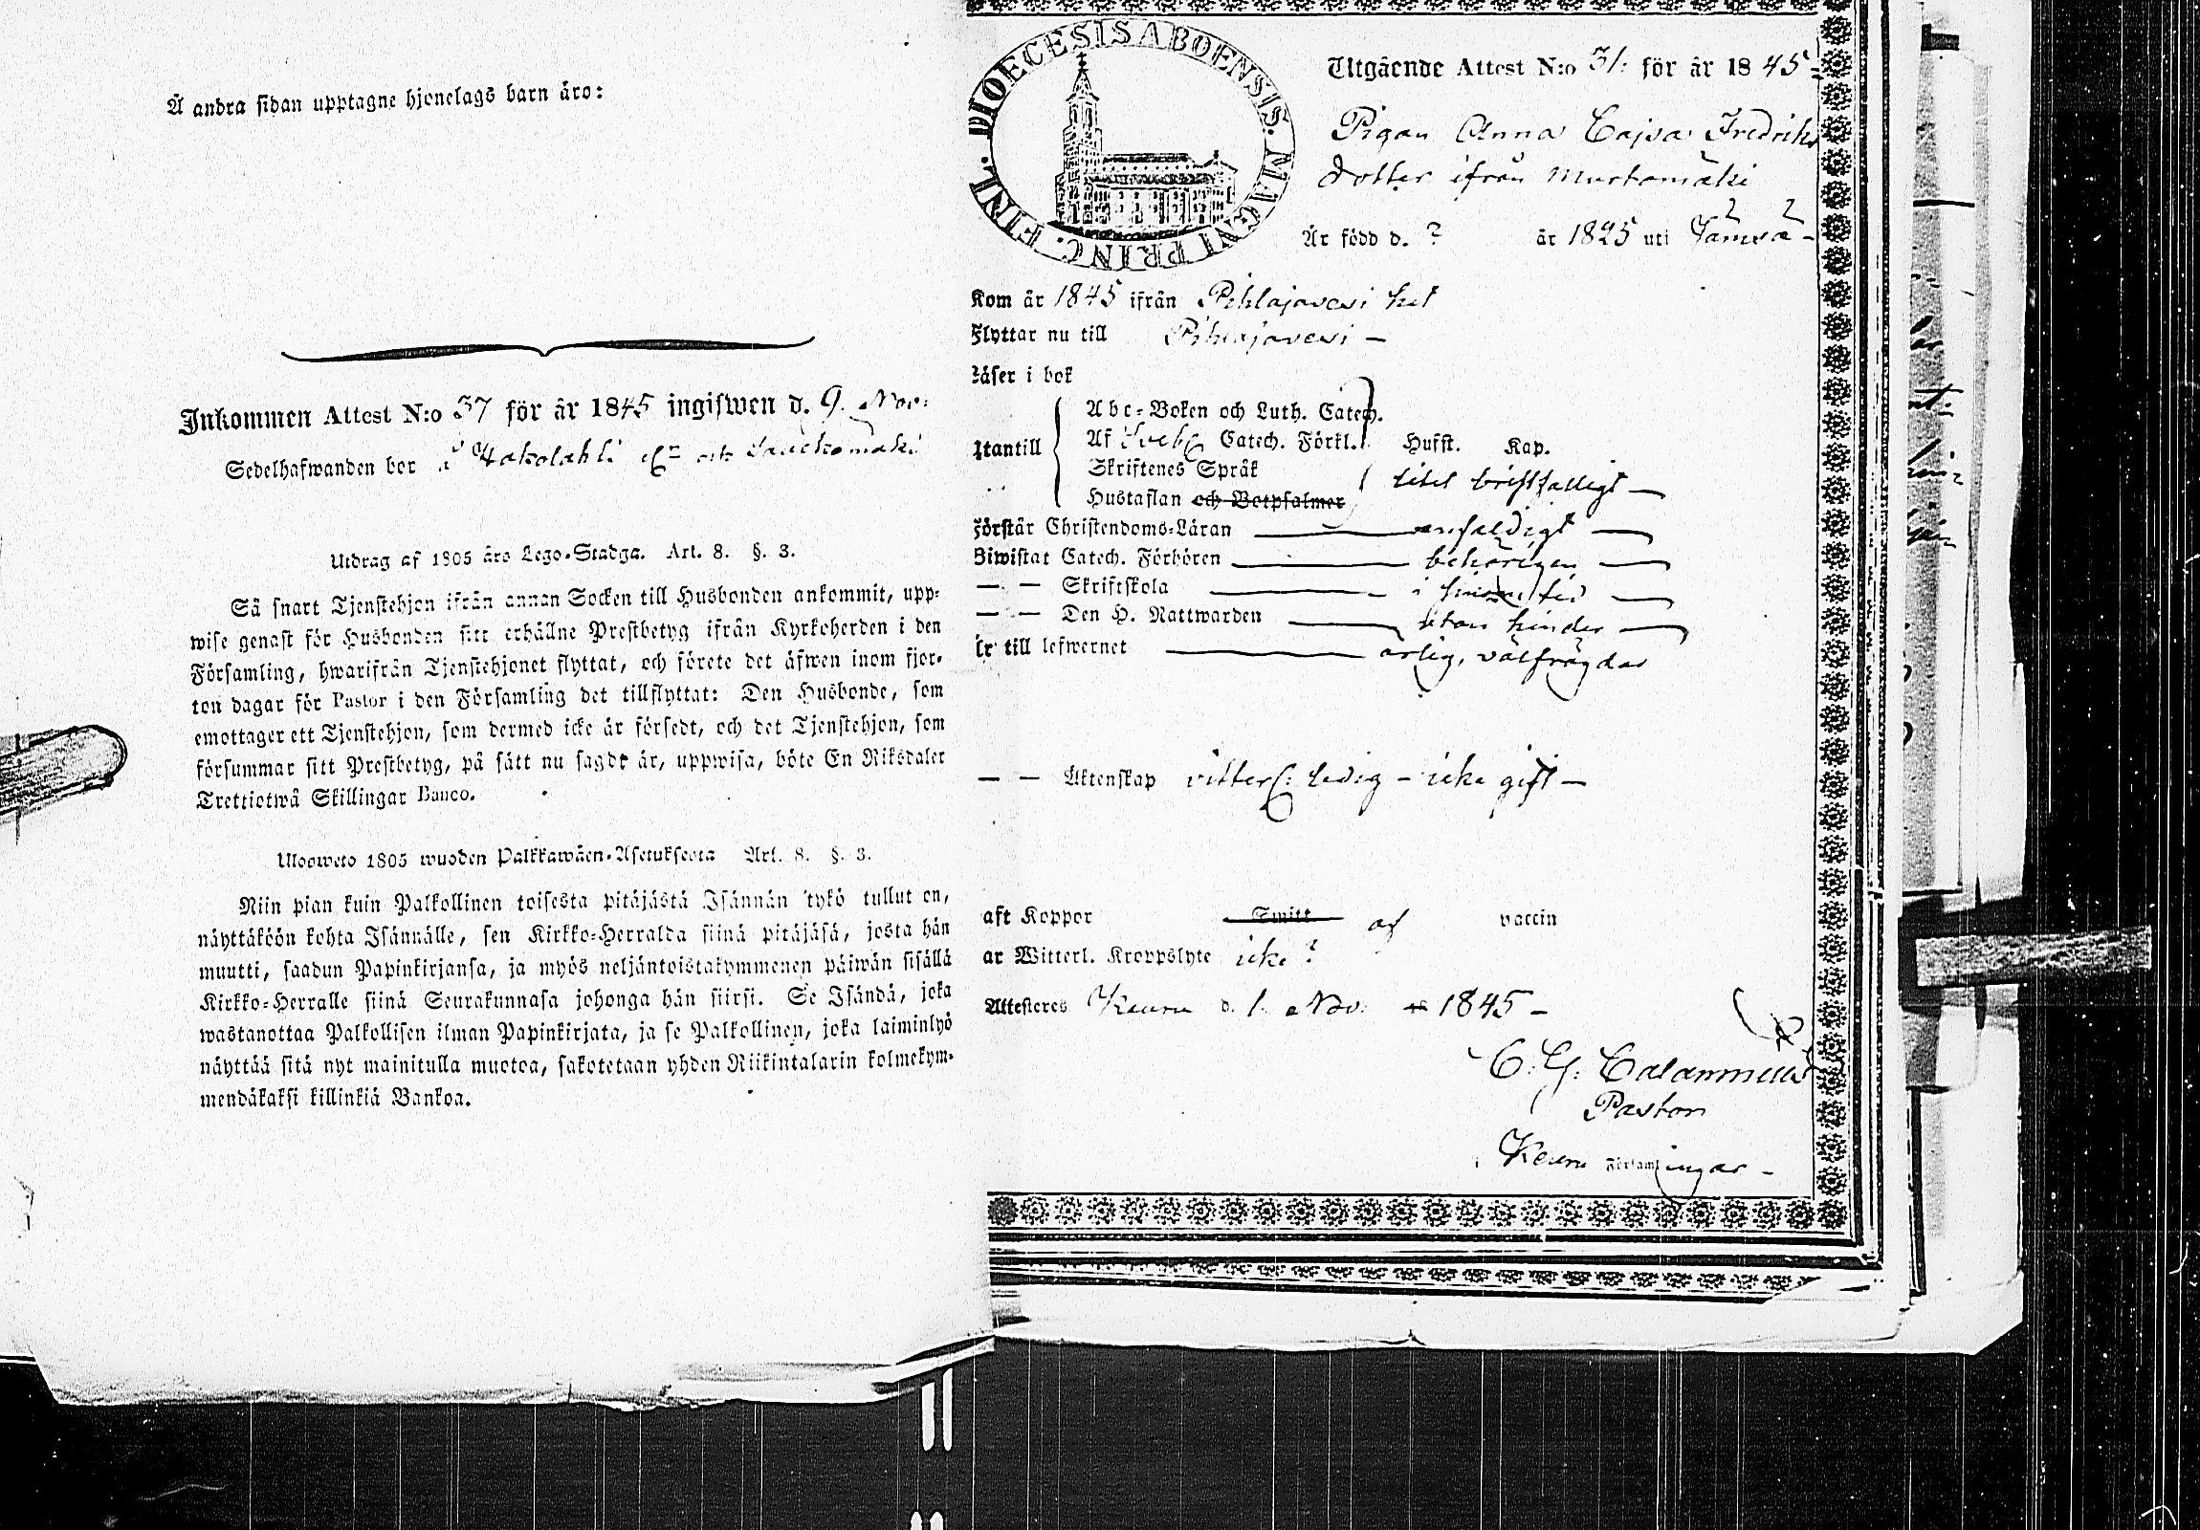 Å andra sidan upptagne hjonelags barn äro:
Inkommen Attest N:o 37 för år 1845 ingifwen d. 9. Nov:
Sedelhafwanden bor å Hakolahti
Utdrag af 1805 års Lego-Stadga. Art. 8. §. 3.
Så snart Tjenstehjon ifrån annan Socken till Husbonden ankommit, upp-
wise genast för Husbonden sitt erhållne Prestbetyg ifrån Kyrkoherden i den
Församling, hwarifrån Tjenstehjonet flyttat, och förete det äfwen inom fjor-
ton dagar för Pastor i den Församling det tillflyttat: Den Husbonde, som
emottager ett Tjenstehjon, som dermed icke är försedt, och det Tjenstehjon, som
försummar sitt Prestbetyg, på sätt nu sagdt är, uppwisa, böte En Riksdaler
Trettiotwå Skillingar Banco.
Ulosweto 1805 wuoden Palkkawäen-Asetuksesta Art. 8. §. 3.
Niin pian kuin Palkollinen toisesta pitäjästä Isännän tykö tullut on,
näyttäköön kohta Isännälle, sen Kirkko-Herralda siinä pitäjäsä, josta hän
muutti, saadun Papinkirjansa, ja myös neljäntoistakymmenen päiwän sisällä
Kirkko-Herralle siinä Seurakunnasa johonga hän siirsi. Se Isändä, joka
wastanottaa Palkollisen ilman Papinkirjata, ja se Palkollinen, joka laiminlyö
näyttää sitä nyt mainitulla muotoa, sakotetaan yhden Riikintalarin kolmekym-
mendäkaksi killinkiä Bankoa.
DIOECESIS ABOENSIS. MAGNI PRINC. FINL.
Utgående Attest N:o 31: för år 1845
Pigan Anna Cajsa Fredriks
dotter ifrån Murtomäki
Är född d. ? år 1825 uti Jämsä -
Kom år 1845 ifrån Pihlajavesi hit
Flyttar nu till Pihlajavesi -
Läser i bok
Utantill
Abc-Boken och Luth. Catech.
Af Sveb Catech. Förkl. Hufst. Kap.
Skriftenes Språk
Hustaflan och Botpsalmer
litet bristfälligt -
Förstår Christendoms-Läran enfaldigt -
Biwistat Catech. Förhören behörigen -
— — Skriftskola i sinom tid -
— — Den H. Nattwarden utan hinder -
Är till lefwernet ärlig, välfrägdad
— — Äktenskap vitterl: ledig - icke gift -
aft Koppor Smitt af vaccin
ar Witterl. Kroppslyte icke ?
Attesteres Keuru d. 1. Nov: 1845 -
Pastor
Keuru Församlingar -